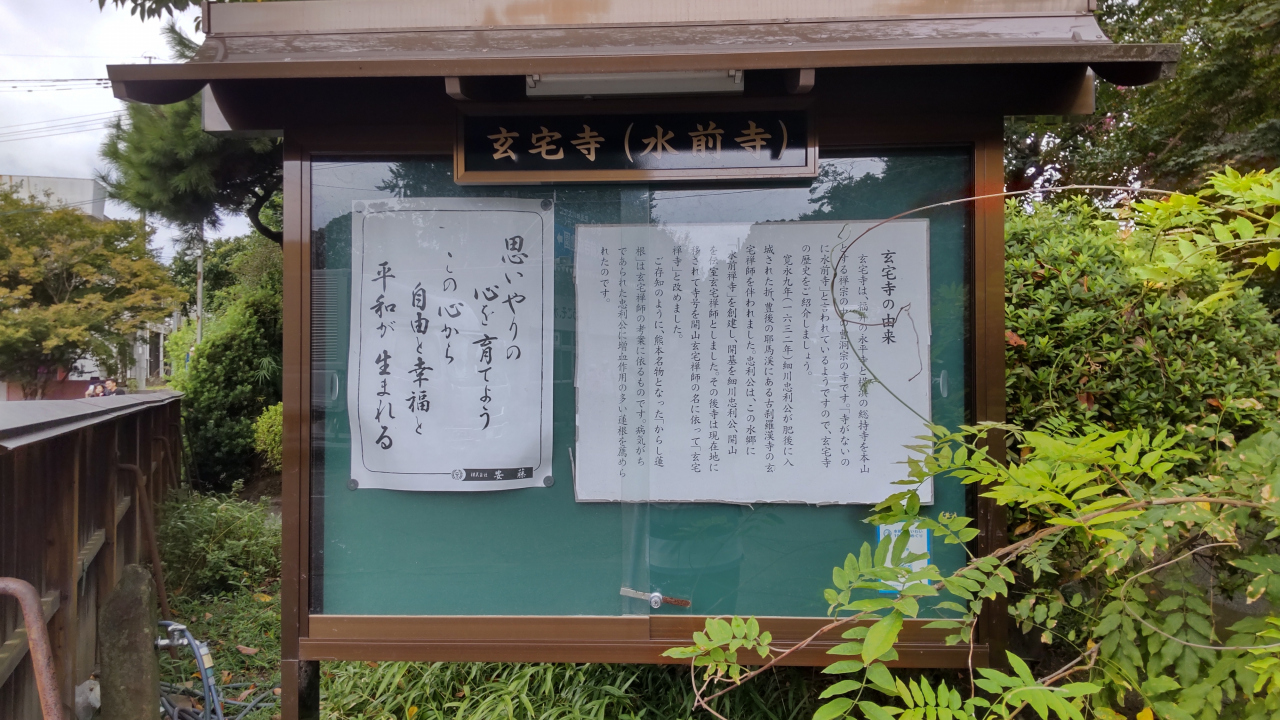 玄宅寺（水前寺）
玄宅寺の由来
玄宅寺は、福井の永平寺と横浜の総持寺を本山
とする禅宗の中の曹洞宗の寺です。「寺がないの
に水前寺」とされているようですので、玄宅寺
の歴史をご紹介しましょう。
寛永九年（一六三二年）細川忠利公が肥後に入
城された折、豊後の耶馬渓にある古刹羅漢寺の玄
宅禅師を伴われました。忠利公は、この水郷に
「水前禅寺」を創建し、開基を細川忠利公、開山
を室玄宅禅師としました。その後寺は現在地に
移されて寺号を開山玄宅禅師の名に依って「玄宅
禅寺」と改めました。
ご存知のように、熊本名物となった「からし蓮
根」は玄宅禅師の考案に依るものです。病気がち
であられた忠利公に増血作用の多い蓮根を薦めら
れたのです。
思いやりの
心を育てよう
この心から
自由と幸福と
平和が生まれる
株式会社 安藤